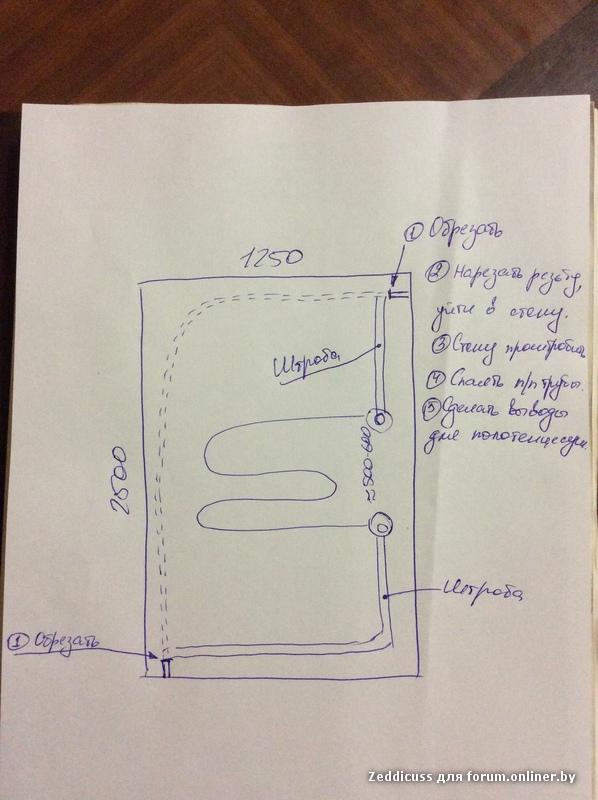 1250
① Обрезать
② Нарезать резьбу,
уйти в стену.
③ Стену проштробить
④ Спаять п/п трубы.
⑤ Сделать выводы
для полотенцесуш.
Штроба
≈500-600
2500
Штроба
① Обрезать
Zeddicuss для forum.onliner.by